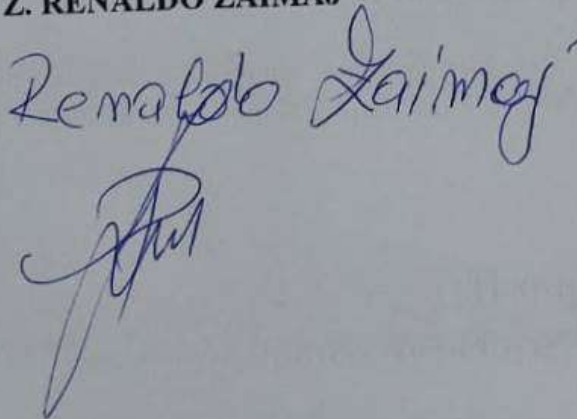 Z. RENALDO ZAIMAJ
Renaldo Zaimaj